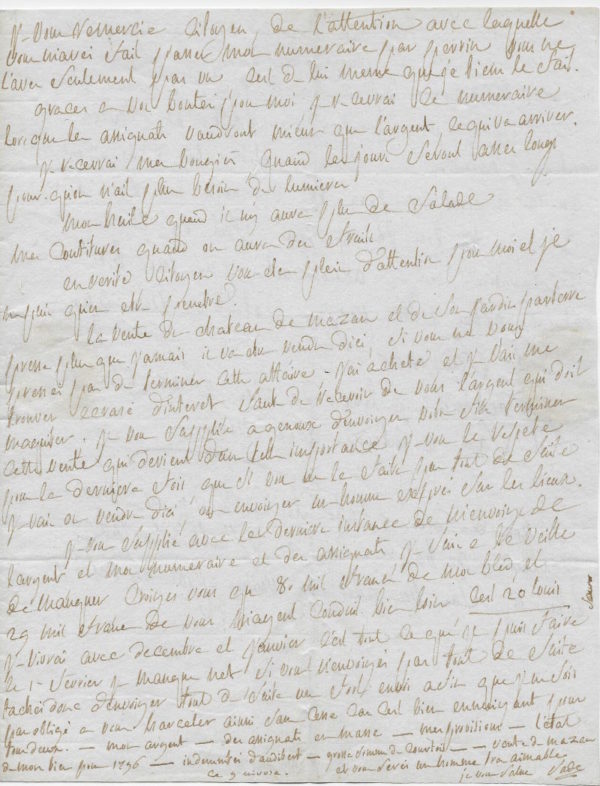 je vous remercie citoyen, de l'attention avec laquelle
vous m'avez fait passer mon numeraire par perrin vous ne
l'avez seulement pas vu c'est de lui meme que je tiens le fait.
graces a vos bontes pour moi je recevrai le numeraire
lorsque les assignats vaudront mieux que l'argent ce qui va arriver.
je recevrai mes bougies quand les jours seront assez longs
pour qu'on n'ait plus besoin de lumieres
mon huile quand il n'y aura plus de salade
mes confitures quand on aura des fruits
en verité citoyen vous etes plein d'attention pour moi et je
la vente du chateau de mazan et de son jardin parterre
presse plus que jamais il va etre vendu d'ici si vous ne vous
pressez pas de terminer cette affaire - j'ai acheté et je vais me
trouver ecrasé d'interet faute de recevoir de vous l'argent qui doit
je vous supplie a genoux d'envoyer votre fils terminer
cette vente qui devient d'une telle importance je vous le repete
pour la derniere fois que si vous ne le faites pas tout de suite
je vais ou vendre d'ici ou envoyer un homme expres sur les lieux.
je vous supplie avec les dernieres instances de m'envoyer de
l'argent et mon numeraire et des assignats je suis a la veille
de manquer croyez vous que 80 mil francs de mon bled et
29 mil francs de vous m'ayent conduit bien loin c'est 20 louis
je vivrai avec decembre et janvier c'est tout ce que je puis faire
le 1er fevrier je manque net si vous n'envoyez pas tout de suite
tachez donc d'envoyer tout de suite un fort envoi afin que je ne sois
pas obligé a vous harceler ainsi sans cesse car c'est bien ennuyant pour
tous deux. — mon argent — des assignats en masse — mes provisions — l'état
de mon bien pour 1796 — indemnités d'audibert — grosse somme de — vente de mazan
et vous serez un homme tres aimable
ce 9 nivose.
je vous salue Sade